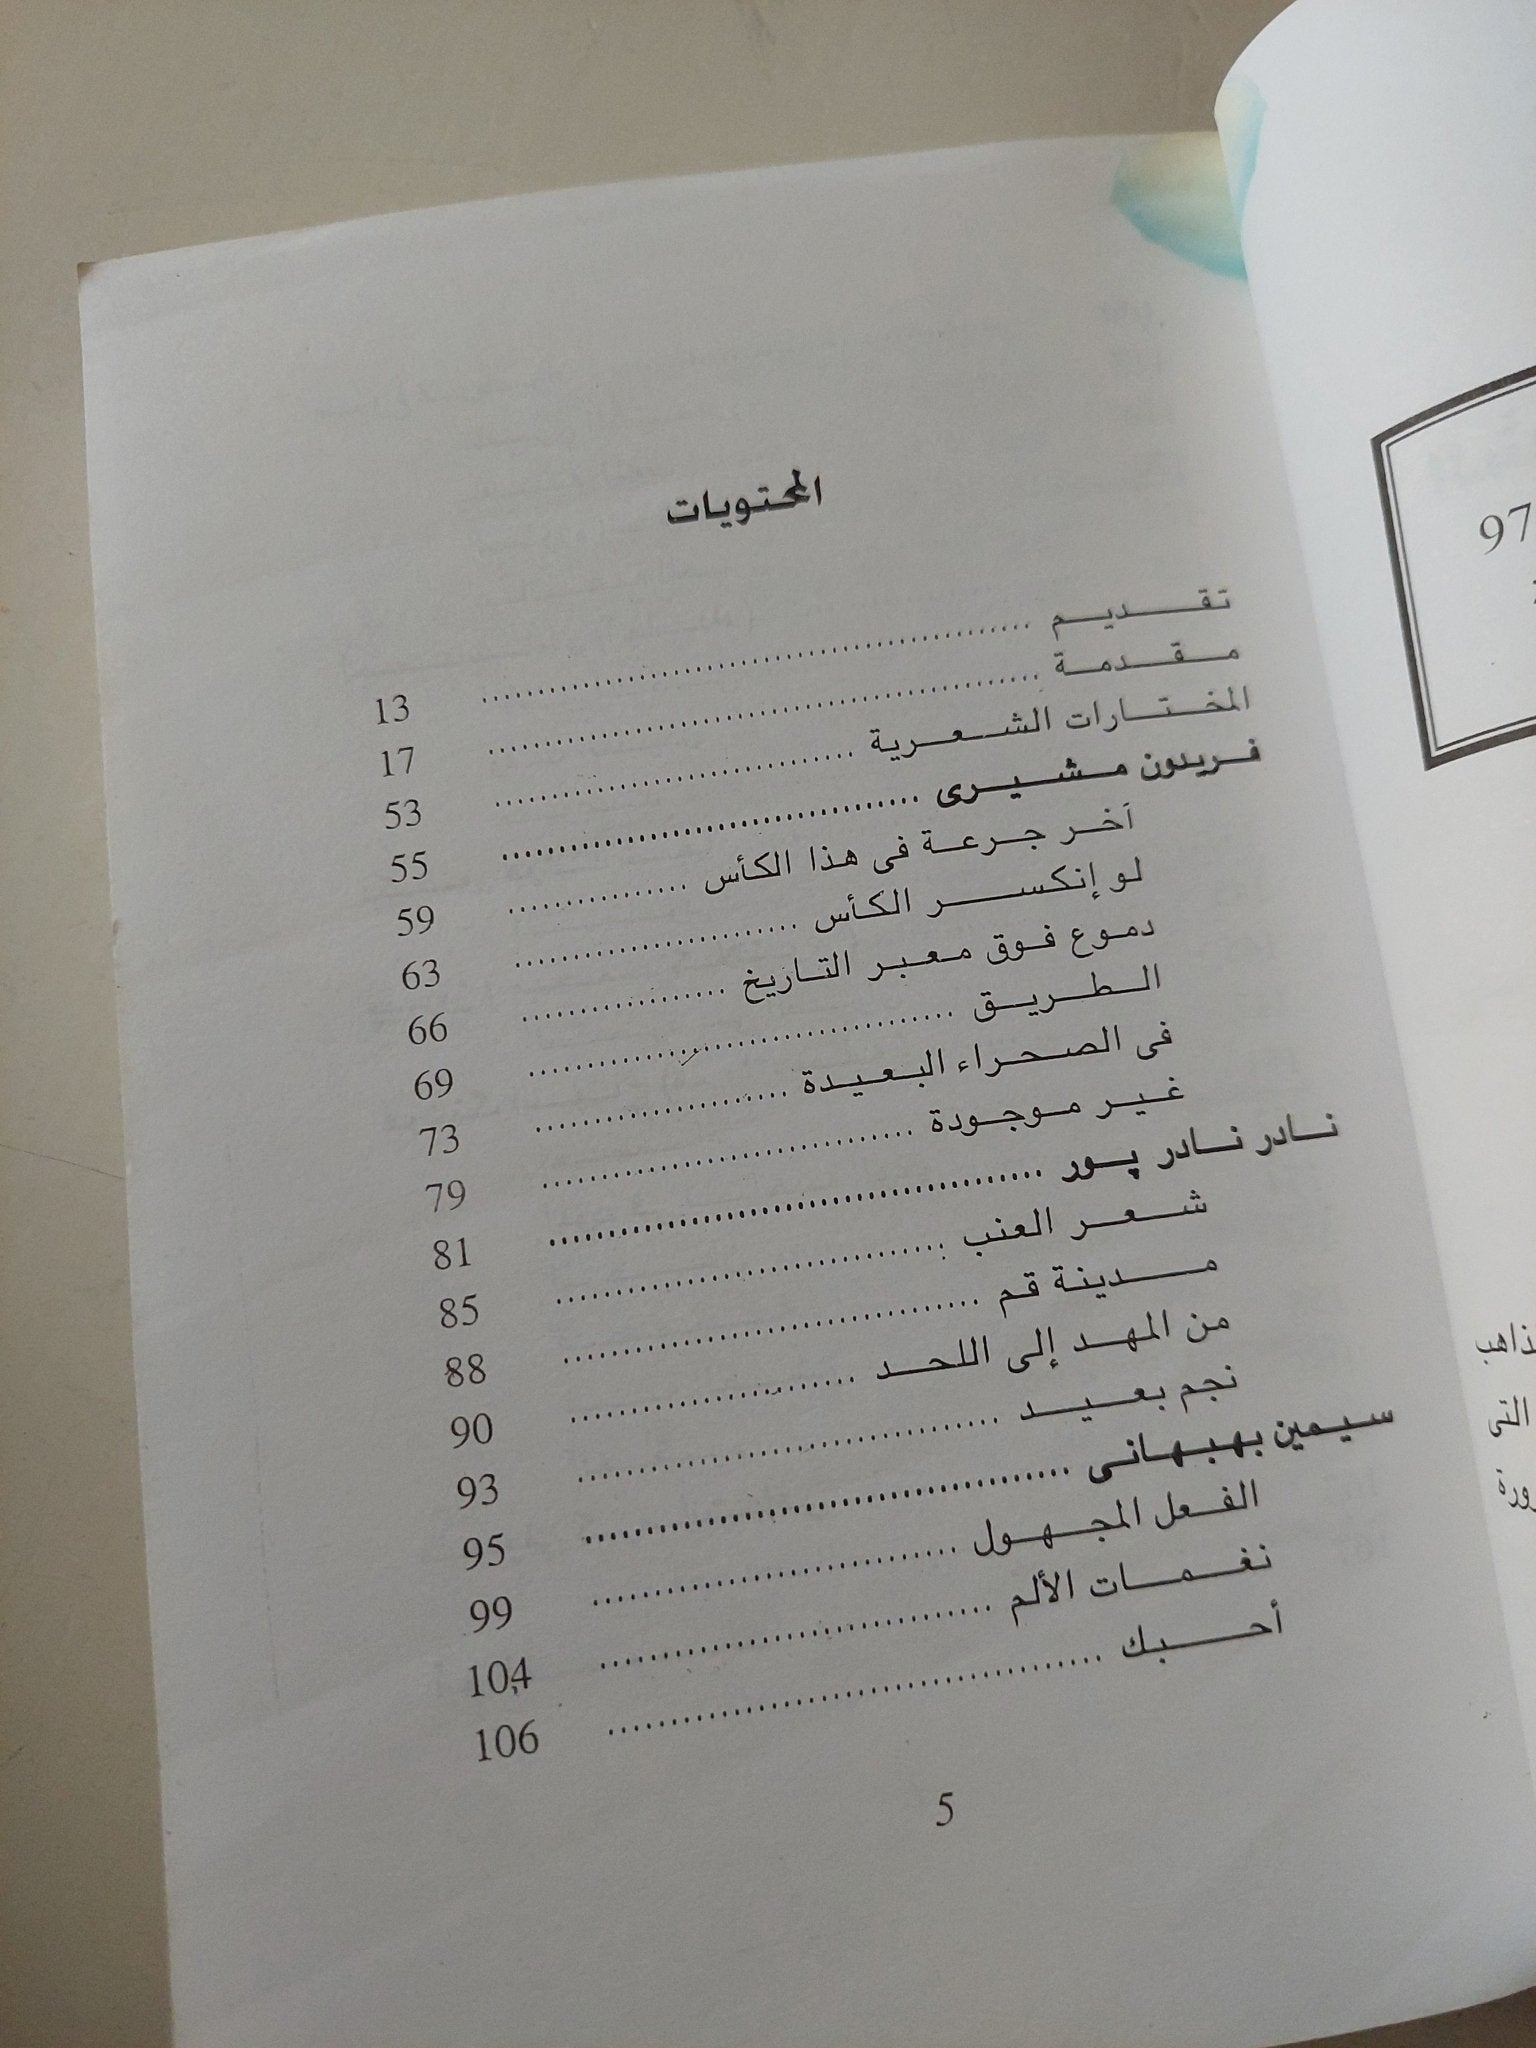 المحتويات
تقديم ........ 13
مقدمة ........ 17
المختارات الشعرية ........ 53
فريدون مشيرى ........ 55
آخر جرعة فى هذا الكأس ........ 59
لو إنكسر الكأس ........ 63
دموع فوق معبر التاريخ ........ 66
الطريق ........ 69
فى الصحراء البعيدة ........ 73
غير موجودة ........ 79
نادر نادر پور ........ 81
شعر العنب ........ 85
مدينة قم ........ 88
من المهد إلى اللحد ........ 90
نجم بعيد ........ 93
سيمين بهبهانى ........ 95
الفعل المجهول ........ 99
نغمات الألم ........ 104
أحبك ........ 106
5
97
التى